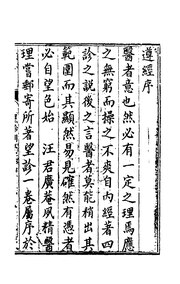 遵經序
醫者意也然必有一定之理焉應
之無窮而操之不爽自內經著四
診之說後之言醫者莫能稍出其
範圍而其顯然易見確然有憑者
必自望色始 汪君廣菴夙精醫
理嘗郵寄所著望診一卷屬序於